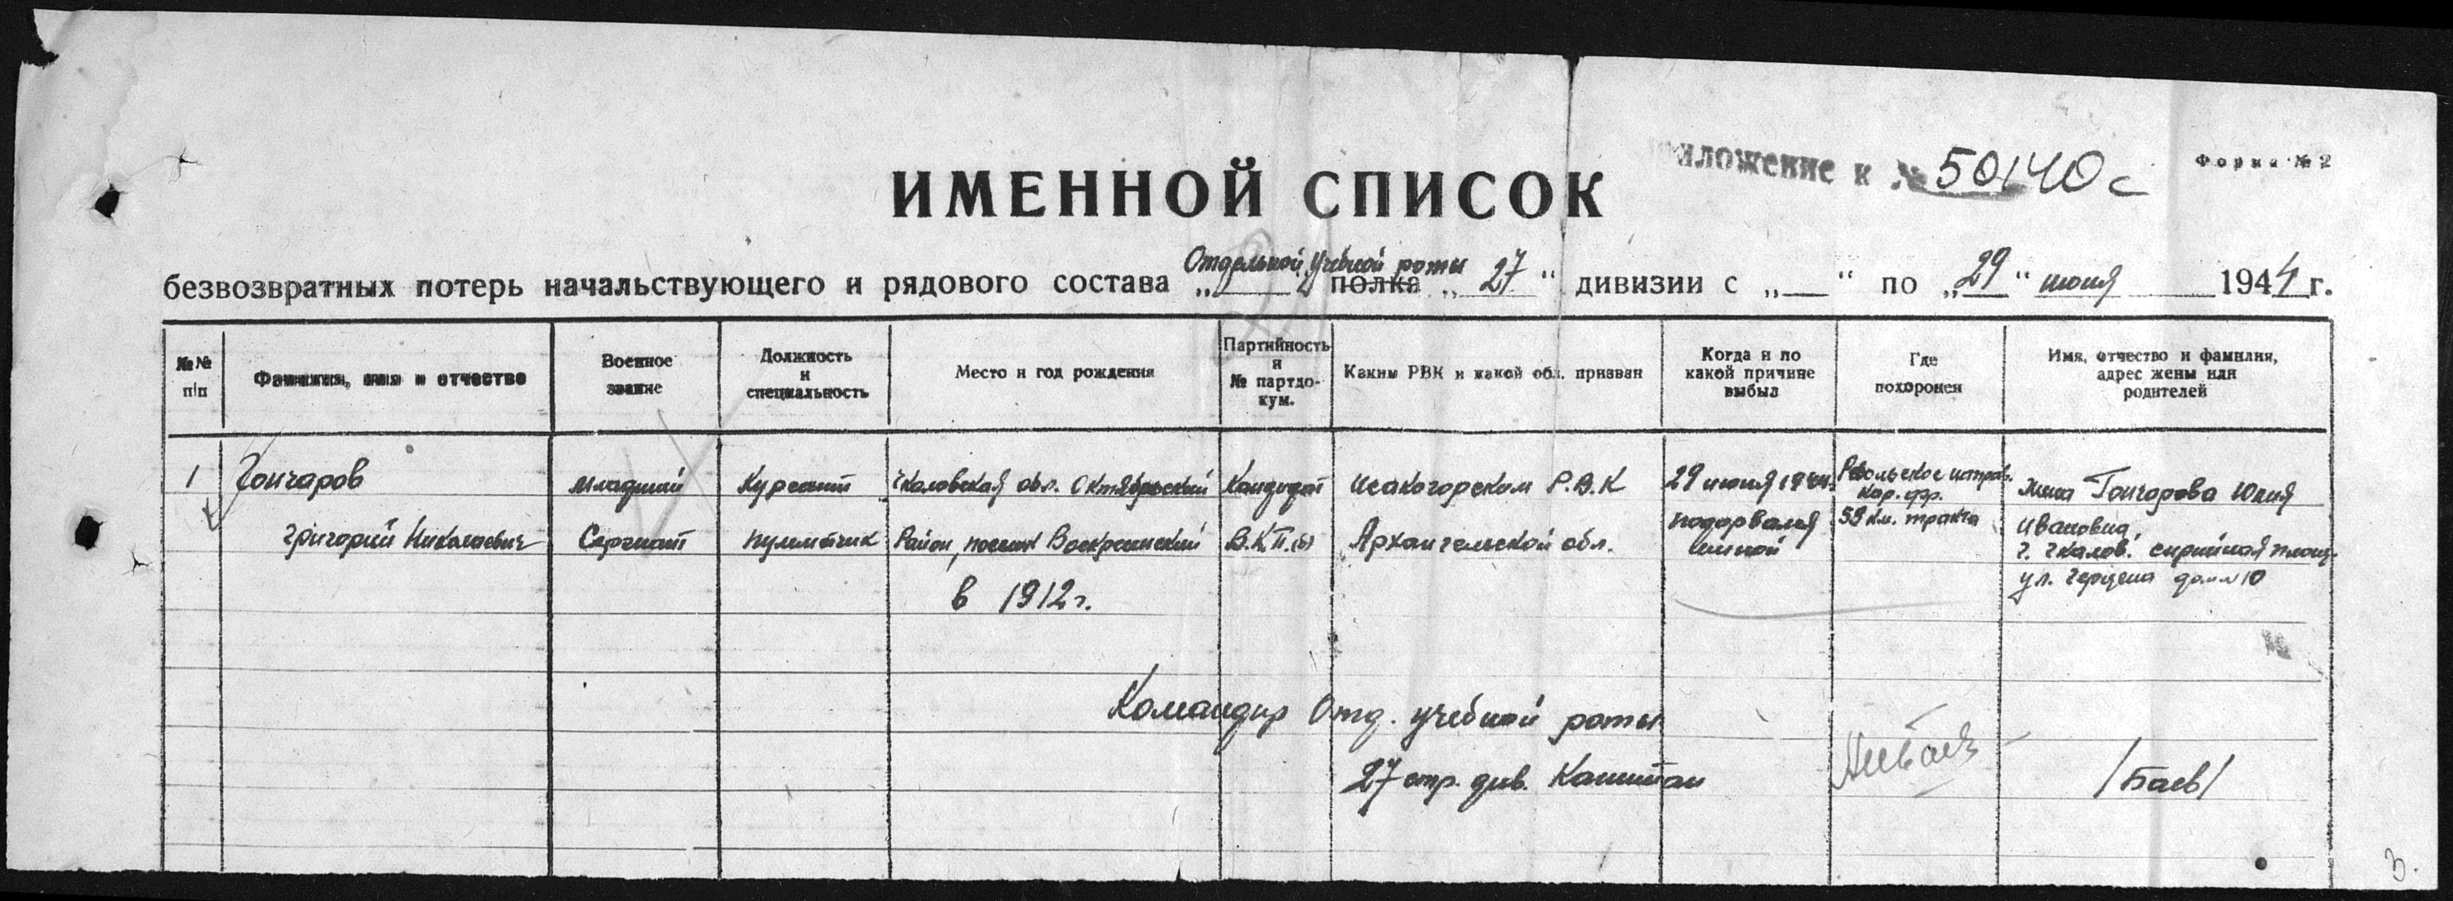 иложение к № 50140с
Форма № 2
ИМЕННОЙ СПИСОК
Отдельной Учебной роты
безвозвратных потерь начальствующего и рядового состава „ “ полка „ 27 “ дивизии с „ “ по „ 29 “ июня 1944 г.
№№ п/п
Фамилия, имя и отчество
Военное звание
Должность и специальность
Место и год рождения
Партийность и № партдокум.
Каким РВК и какой обл. призван
Когда и по какой причине выбыл
Где похоронен
Имя, отчество и фамилия, адрес жены или родителей
1
Гончаров
Григорий Николаевич
младший
Сержант
Курсант
пулеметчик
Чкаловская обл. Октябрьский
Район, поселок Воскресенский
в 1912 г.
Кандидат
В.К.П.(б)
Исакогорском Р.В.К
Архангельской обл.
29 июня 1944
подорвался
миной
Ребольское направ.
Кар. фр.
59 км. тракта
жена Гончарова Юлия
Ивановна
г. Чкалов.
ул. Герцена дом №10
Командир Отд. учебной роты
27 стр. див. Капитан
/Баев/
3.